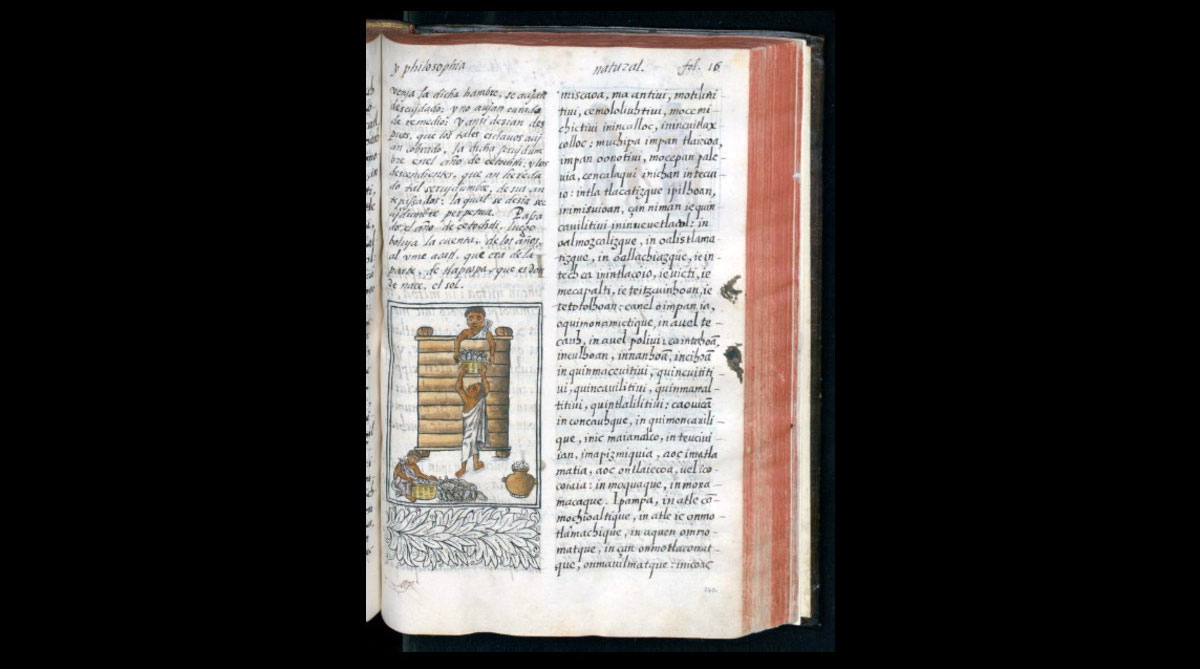 y philosophia
natural. fol. 16
venja la dicha hambre, se aujan
descujdado: y no aujan curado
de remedio: y ansi dezian des
pues, que los tales esclavos auj
an cobrado, la dicha serujdum
bre en el año de cetochtli, y los
descendientes, que an hereda
do tal serujdumbre, de sus an
tepassados: la qual se dezia ser
ujdumbre perpetua. Pasa
do, el año de cetochtli, luego
boluja la cuenta, de los años,
al vme acatl, que era de la
parte, de tlapcopa, que es don
de nace, el sol.
miscaoa, ma antivi, motilini
tivi, cemololiuhtivi, mocemi-
chictivi inincalloc, inincuitlax
colloc: muchipa impan tlaizcoa,
impan oonotivi, mocepan pale-
via, cencalaqui inichan intecu-
io: intla tlacatizque ipilhoan,
inimisuioan, çan niman ie quin
cavilitivi ininvevetlacol: in
oalmozcalizque, in oalistlama-
tizque, in oallachiazque, ie in-
tech ca inintlacoio, ievicti, ie
mecapalti, ie teitzcuinhoan, ie
tetotolhoan: canel oimpan ia,
oquimonamictique, in avel te-
cauh, in avel polivi: ca intahoã,
inculhoan, innanhoã, incihoã
in quinmacevitivi, quincuititi
vi, quincavilitivi, quinmamal-
titivi, quintlalilitivi: ca ovicã
in concauhque, in quimoncavili-
que, inic maianalco, in teuciui-
ian, imapizmiquia, aoc imatla
matia, aoc ontlaiecoa,
cocoiaia: in moquaque, in mona-
macaque. Ipampa, in atle cõ-
mochioaltique, in atle ic onmo-
tlamachique, in aquen onmo-
matque, in çan onmotlaconat-
que, onmavilmatque: inicoac